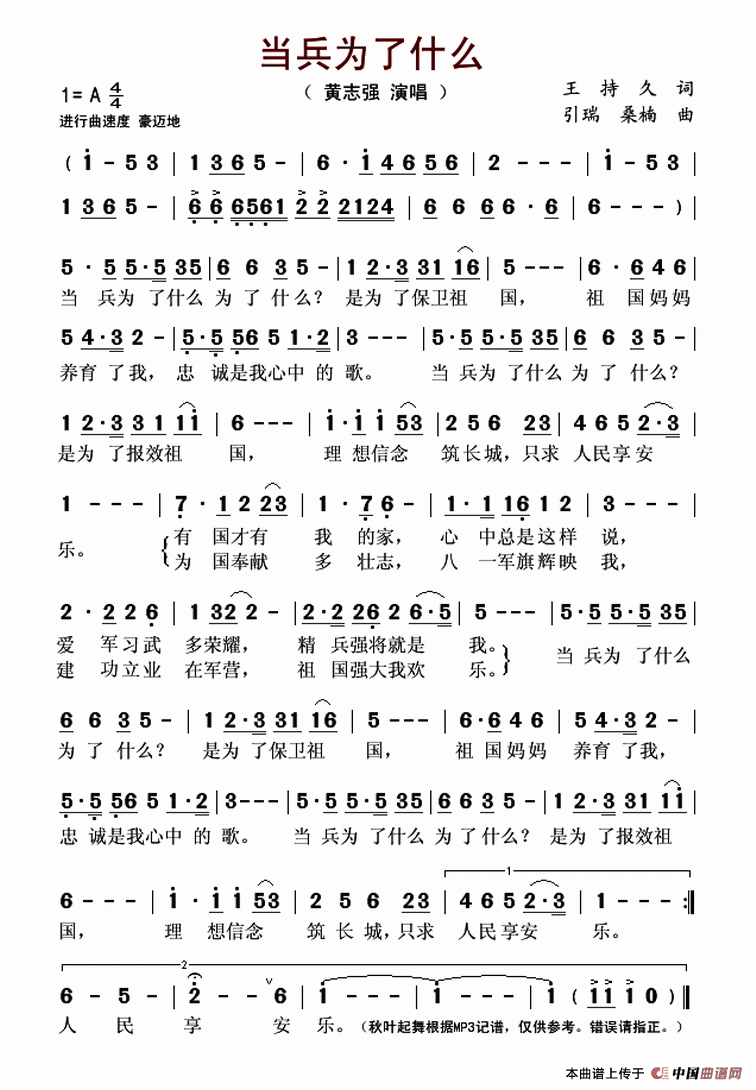 当兵为了什么
1= A 4/4
（ 黄志强 演唱 ）
王 持 久 词
进行曲速度 豪迈地
引瑞 桑楠 曲
( 1 - 5 3 | 1 3 6 5 - | 6 · 1 4 6 5 6 | 2 - - - | 1 - 5 3 |
1 3 6 5 - | 6 6 6561 2 2 2124 | 6 6 6 6·6 | 6 - - - ) |
5 · 5 5·5 35 | 6 6 3 5 - | 1 2·3 31 16 | 5 - - - | 6 · 6 4 6 |
当 兵为 了什么 为了 什么？ 是为 了保卫祖 国， 祖 国妈妈
5 4·3 2 - | 5·5 56 5 1·2 | 3 - - - | 5·5 5·5 35 | 6 6 3 5 - |
养育 了我， 忠 诚是我心中 的 歌。 当 兵为 了什么 为了 什么？
1 2·3 3 1 1 1 | 6 - - - | 1·1 1 53 | 2 5 6 23 | 4 6 5 2·3 |
是为 了报效祖 国， 理 想信念 筑长城，只求 人民享安
1 - - - | 7·1 2 23 | 1·7 6 - | 1·1 16 1 2 | 3 - - - |
乐。 有 国才有 我 的家， 心 中总是这样 说，
为 国奉献 多 壮志， 八 一军旗辉映 我，
2 · 2 2 6 | 1 32 2 - | 2·2 26 2 6·5 | 5 - - - | 5·5 5·5 35 |
爱 军习武 多荣耀， 精 兵强将就是 我。 当 兵为 了什么
建 功立业 在军营， 祖 国强大我欢 乐。
6 6 3 5 - | 1 2·3 31 16 | 5 - - - | 6·6 4 6 | 5 4·3 2 - |
为了 什么？ 是为 了保卫祖 国， 祖 国妈妈 养育 了我，
5·5 56 5 1·2 | 3 - - - | 5·5 5·5 35 | 6 6 3 5 - | 1 2·3 31 11 |
忠 诚是我心中 的 歌。 当 兵为 了什么 为了什么？ 是为 了报效祖
1
6 - - - | 1 · 1 1 53 | 2 5 6 23 | 4 6 5 2·3 | 1 - - - :||
国， 理 想信念 筑 长 城，只求 人民享安 乐。
2
6 - 5 - | 2 · - ∨ 6 | 1 - - - | 1 - - - | 1 ( 1 1 1 0 ) ||
人 民 享 安 乐。（秋叶起舞根据MP3记谱，仅供参考。错误请指正。）
本曲谱上传于 中国曲谱网